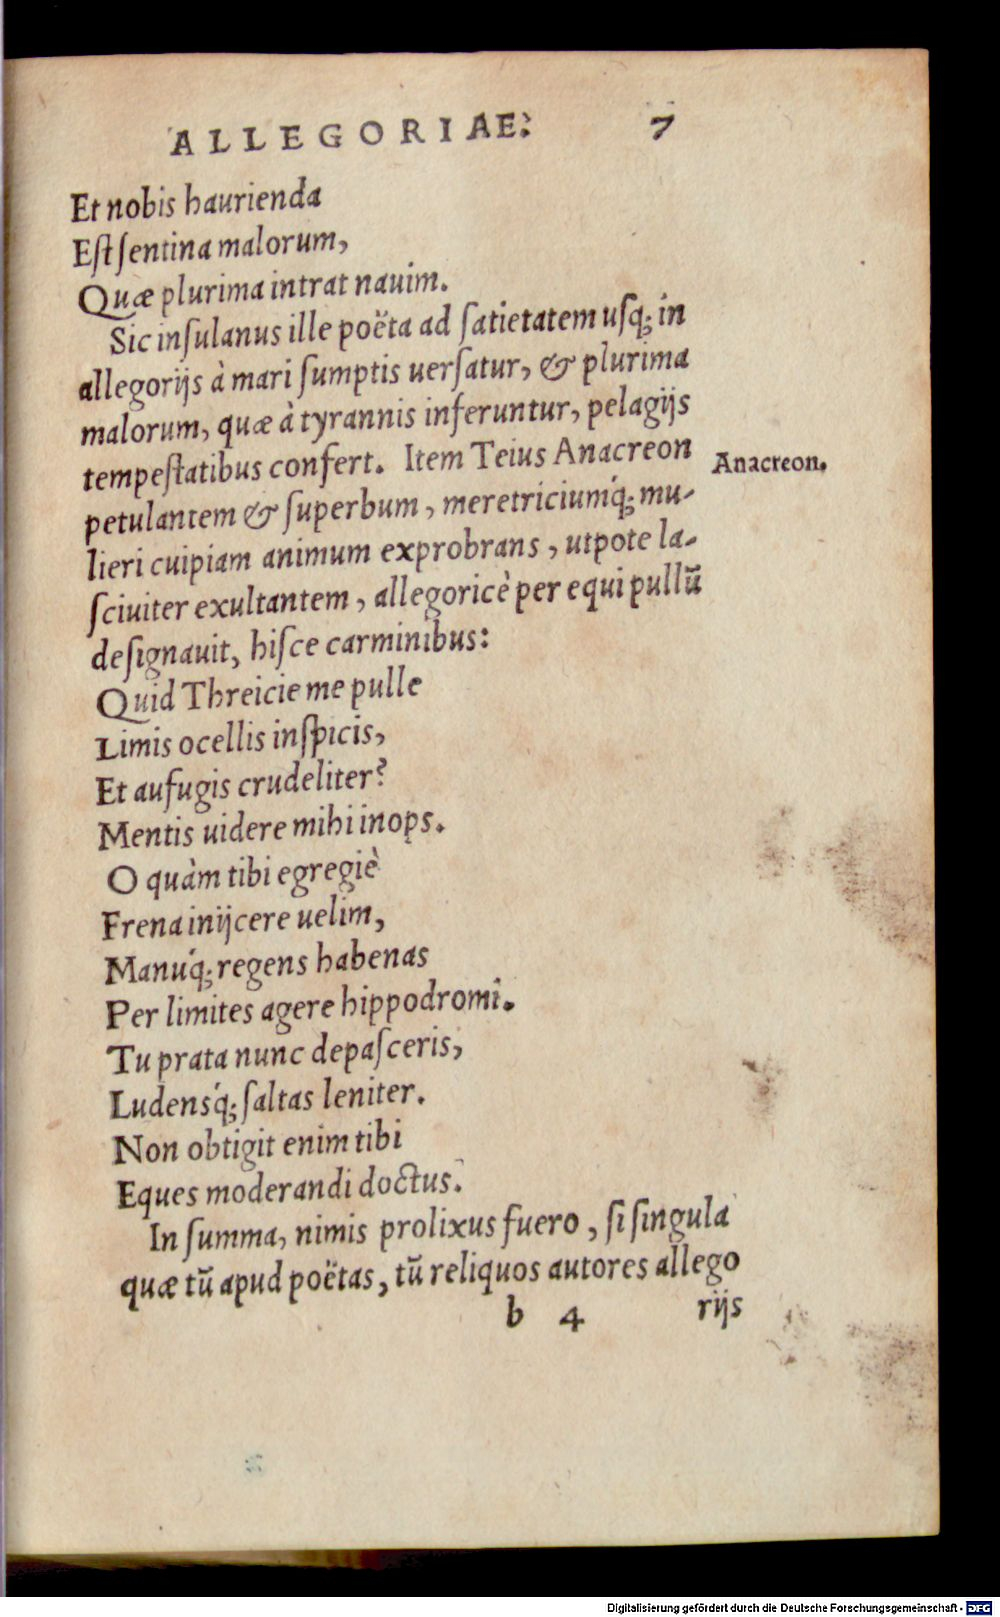 ALLEGORIAE: 7
Et nobis haurienda
Eſt ſentina malorum,
Quæ plurima intrat nauim.
Sic inſulanus ille poëta ad ſatietatem uſq; in
allegorijs à mari ſumptis uerſatur, & plurima
malorum, quæ à tyrannis inferuntur, pelagijs
tempeſtatibus confert. Item Teius Anacreon
Anacreon.
petulantem & ſuperbum, meretriciumq́; mu-
lieri cuipiam animum exprobrans, utpote la-
ſciuiter exultantem, allegoricè per equi pullū
deſignauit, hiſce carminibus:
Quid Threicie me pulle
Limis ocellis inſpicis,
Et aufugis crudeliter?
Mentis uidere mihi inops.
O quàm tibi egregiè
Frena inijcere uelim,
Manuq́; regens habenas
Per limites agere hippodromi.
Tu prata nunc depaſceris,
Ludensq́; ſaltas leniter.
Non obtigit enim tibi
Eques moderandi doctus.
In ſumma, nimis prolixus fuero, ſi ſingula
quæ tū apud poëtas, tū reliquos autores allego
b 4 rijs
Digitalisierung gefördert durch die Deutsche Forschungsgemeinschaft - DFG